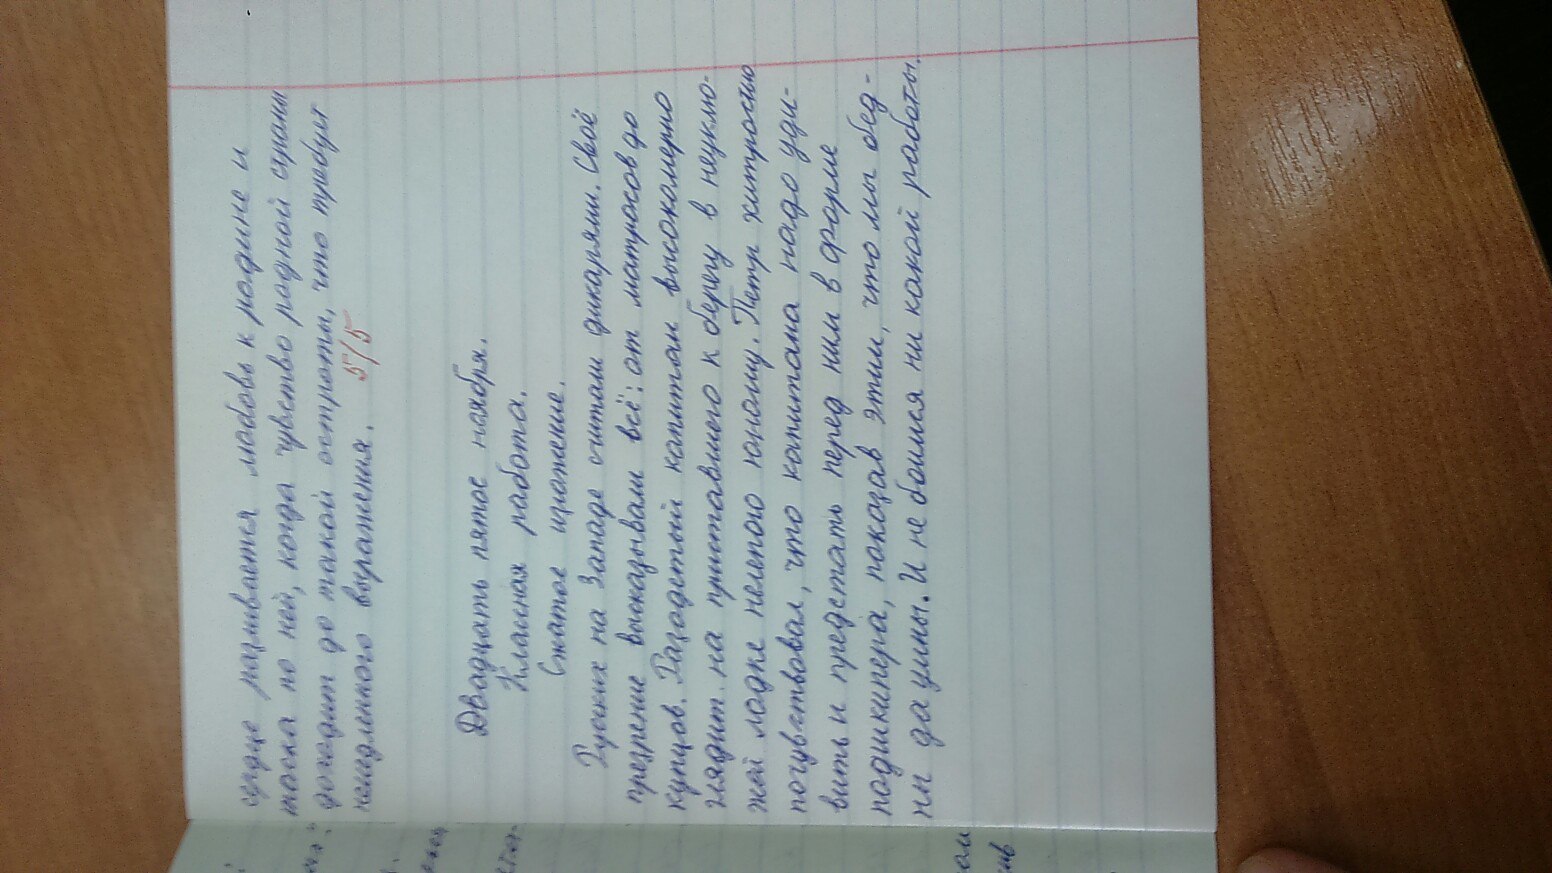 сердце разливается любовь к родине и
тоска по ней, когда чувство родной страны
доходит до такой остроты, что требует
немедленного выражения.
5/5
Двадцать пятое ноября.
Классная работа.
Сжатое изложение.
Русских на Западе считали дикарями. Своё
презрение выказывали всё: от матросов до
купцов. Разодетый капитан высокомерно
глядит на приставшего к берегу в неуклю-
жей лодке нелепого юношу. Петр хитростью
почувствовал, что капитана надо уди-
вить и предстать перед ним в форме
подшкипера, показав этим, что мы бед-
ны да умны. И не боимся ни какой работы.